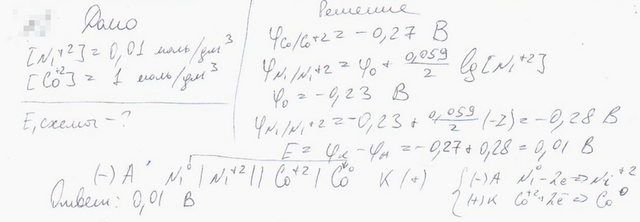 Дано
[Ni+2] = 0,01 моль/дм3
[Co+2] = 1 моль/дм3
E, схемы - ?
Решение
φCo/Co+2 = -0,27 В
φNi/Ni+2 = φ0 + 0,059/2 lg[Ni+2]
φ0 = -0,23 В
φNi/Ni+2 = -0,23 + 0,059/2 (-2) = -0,28 В
E = φк - φа = -0,27 + 0,28 = 0,01 В
(-) A Ni0 | Ni+2 || Co+2 | Co0 K (+)
Ответ: 0,01 В
(-)A Ni0 - 2e => Ni+2
(+)K Co+2 + 2e => Co0